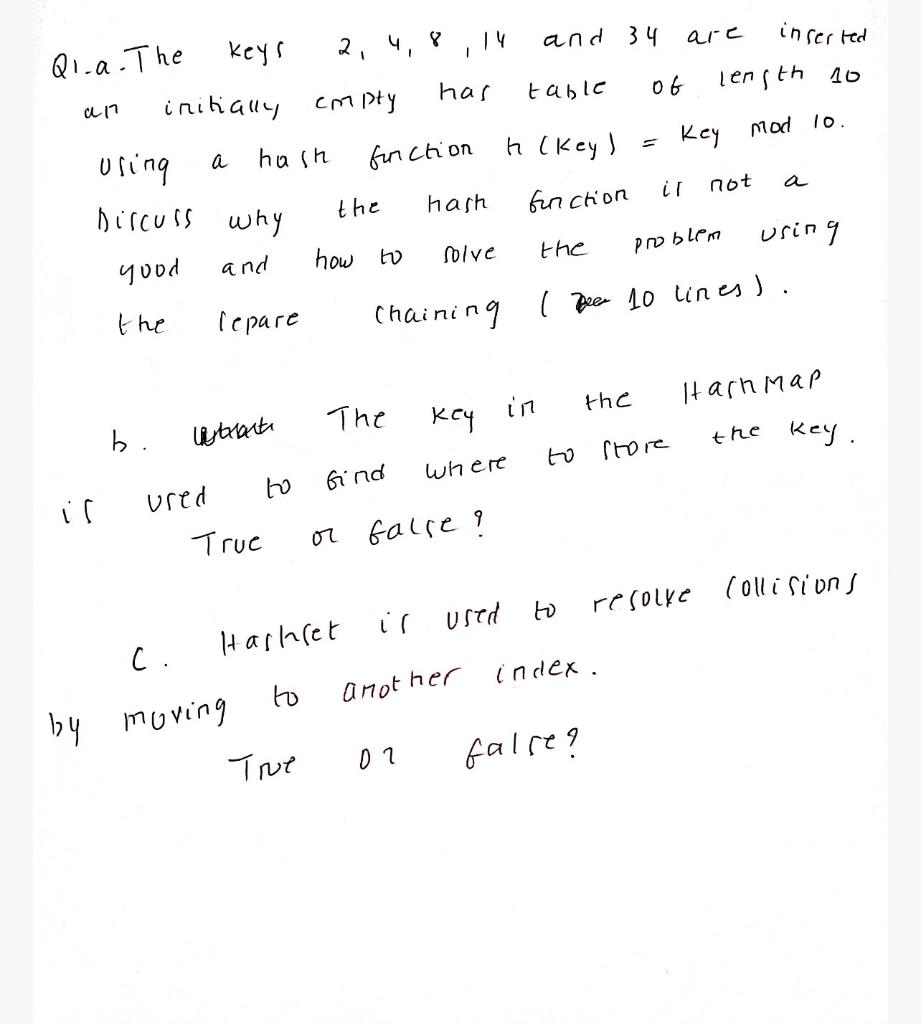 Q1.a. The keys 2, 4, 8, 14 and 34 are inserted
an initially empty has table of length 10
using a hash function h (key) = key mod 10.
Discuss why the hash function is not a
good and how to solve the problem using
the separe chaining ( 10 lines).
b. The key in the HashMap
is used to find where to store the key.
True or false?
c. Hashset is used to resolve collisions
by moving to another index.
True or false?